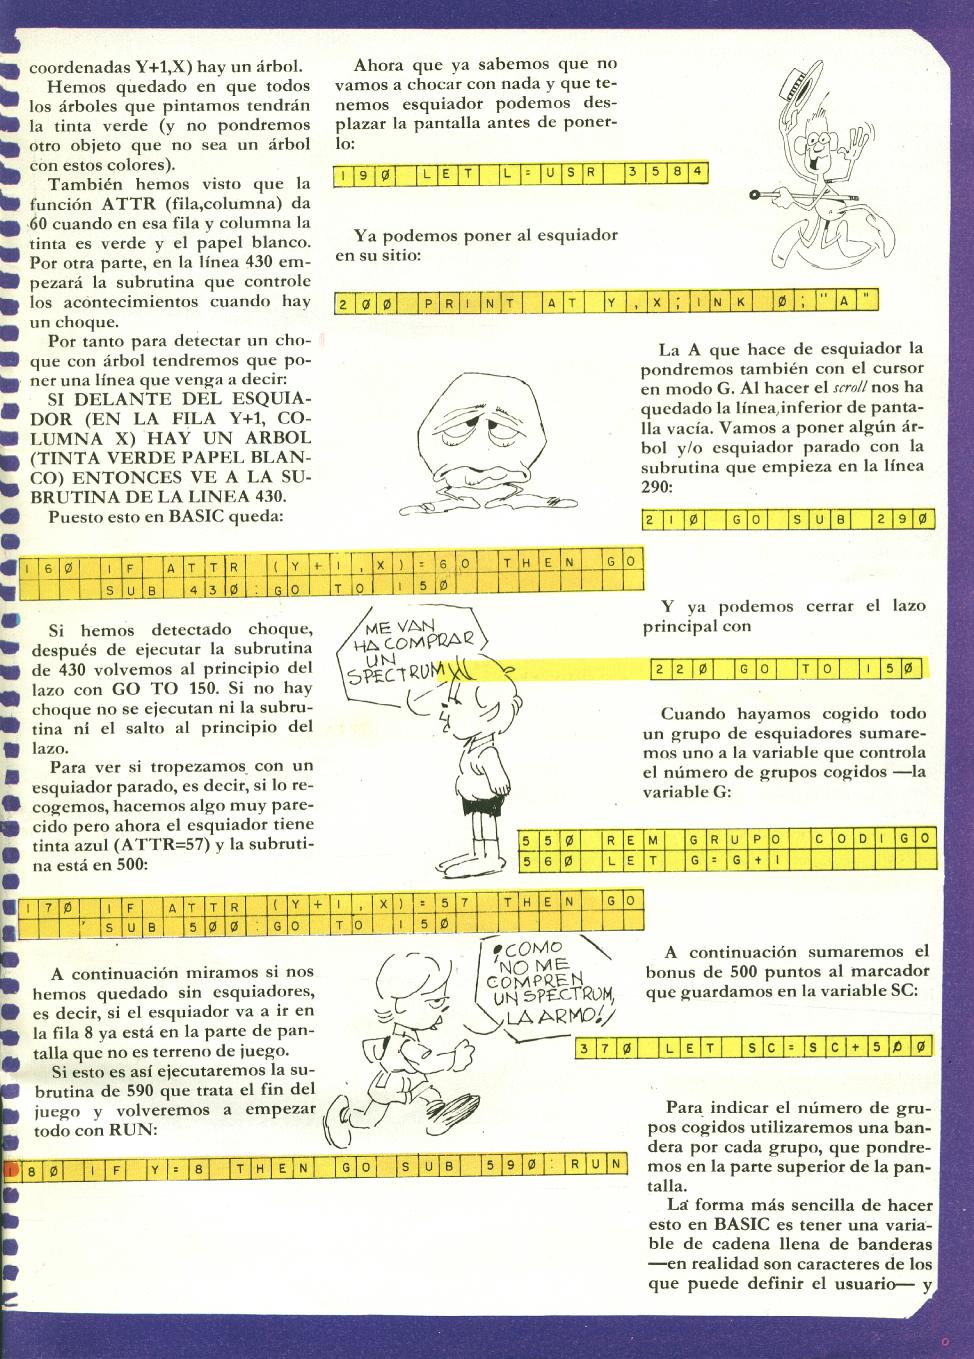 coordenadas Y+1,X) hay un árbol.
Hemos quedado en que todos
los árboles que pintamos tendrán
la tinta verde (y no pondremos
otro objeto que no sea un árbol
con estos colores).
También hemos visto que la
función ATTR (fila,columna) da
60 cuando en esa fila y columna la
tinta es verde y el papel blanco.
Por otra parte, en la línea 430 em-
pezará la subrutina que controle
los acontecimientos cuando hay
un choque.
Por tanto para detectar un cho-
que con árbol tendremos que po-
ner una línea que venga a decir:
SI DELANTE DEL ESQUIA-
DOR (EN LA FILA Y+1, CO-
LUMNA X) HAY UN ARBOL
(TINTA VERDE PAPEL BLAN-
CO) ENTONCES VE A LA SU-
BRUTINA DE LA LINEA 430.
Puesto esto en BASIC queda:
160 IF ATTR (Y+1,X)=60 THEN GO
SUB 430:GO TO 150
Si hemos detectado choque,
después de ejecutar la subrutina
de 430 volvemos al principio del
lazo con GO TO 150. Si no hay
choque no se ejecutan ni la subru-
tina ni el salto al principio del
lazo.
Para ver si tropezamos con un
esquiador parado, es decir, si lo re-
cogemos, hacemos algo muy pare-
cido pero ahora el esquiador tiene
tinta azul (ATTR=57) y la subruti-
na está en 500:
170 IF ATTR (Y+1,X)=57 THEN GO
SUB 500:GO TO 150
A continuación miramos si nos
hemos quedado sin esquiadores,
es decir, si el esquiador va a ir en
la fila 8 ya está en la parte de pan-
talla que no es terreno de juego.
Si esto es así ejecutaremos la su-
brutina de 590 que trata el fin del
juego y volveremos a empezar
todo con RUN:
180 IF Y=8 THEN GO SUB 590:RUN
Ahora que ya sabemos que no
vamos a chocar con nada y que te-
nemos esquiador podemos des-
plazar la pantalla antes de poner-
lo:
190 LET L=USR 3584
Ya podemos poner al esquiador
en su sitio:
200 PRINT AT Y,X;INK 0;"A"
ME VAN
HA COMPRAR
UN
SPECTRUM
¡COMO
NO ME
COMPREN
UN SPECTRUM,
LA ARMO!
La A que hace de esquiador la
pondremos también con el cursor
en modo G. Al hacer el scroll nos ha
quedado la línea inferior de panta-
lla vacía. Vamos a poner algún ár-
bol y/o esquiador parado con la
subrutina que empieza en la línea
290:
210 GO SUB 290
Y ya podemos cerrar el lazo
principal con
220 GO TO 150
Cuando hayamos cogido todo
un grupo de esquiadores sumare-
mos uno a la variable que controla
el número de grupos cogidos —la
variable G:
550 REM GRUPO CODIGO
560 LET G=G+1
A continuación sumaremos el
bonus de 500 puntos al marcador
que guardamos en la variable SC:
370 LET SC=SC+500
Para indicar el número de gru-
pos cogidos utilizaremos una ban-
dera por cada grupo, que pondre-
mos en la parte superior de la pan-
talla.
La forma más sencilla de hacer
esto en BASIC es tener una varia-
ble de cadena llena de banderas
—en realidad son caracteres de los
que puede definir el usuario— y